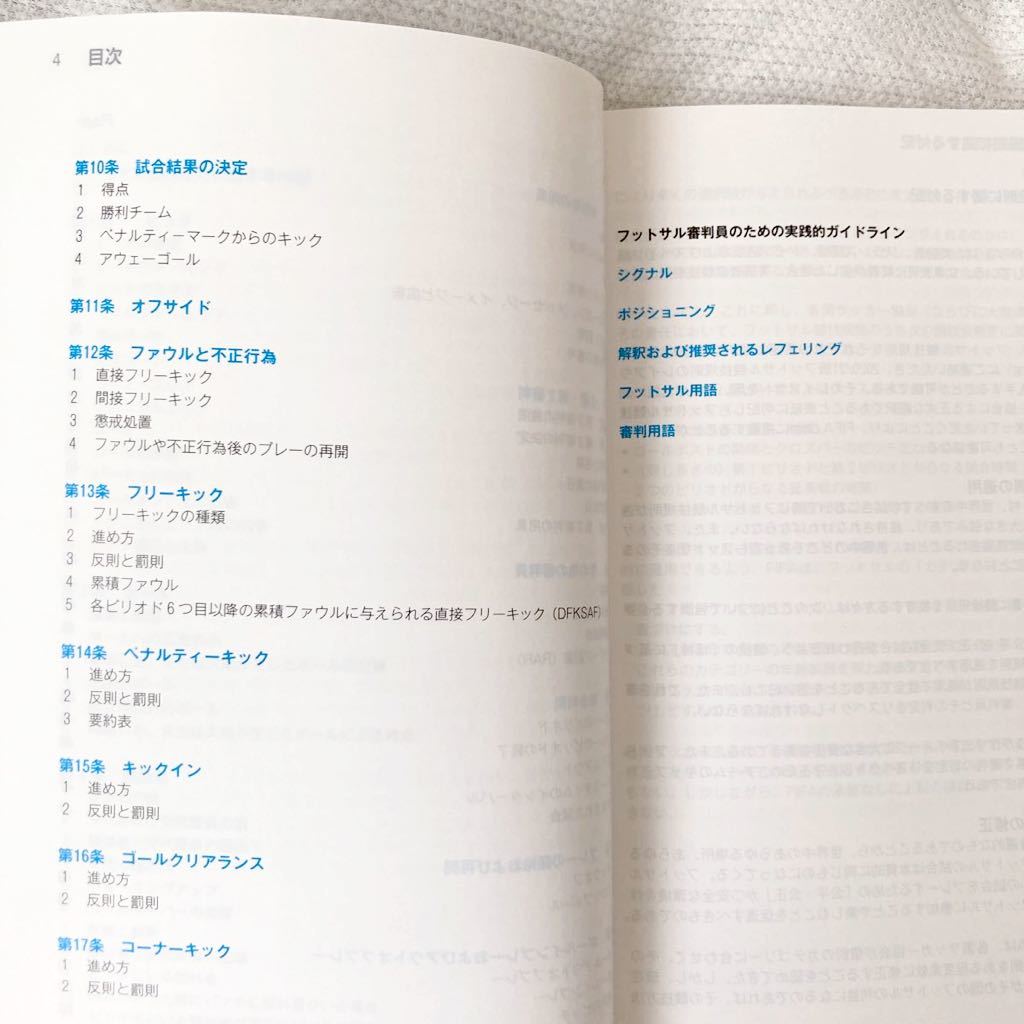 4 目次
第10条 試合結果の決定
1 得点
2 勝利チーム
3 ペナルティーマークからのキック
4 アウェーゴール
第11条 オフサイド
第12条 ファウルと不正行為
1 直接フリーキック
2 間接フリーキック
3 懲戒処置
4 ファウルや不正行為後のプレーの再開
第13条 フリーキック
1 フリーキックの種類
2 進め方
3 反則と罰則
4 累積ファウル
5 各ピリオド6つ目以降の累積ファウルに与えられる直接フリーキック（DFKSAF）
第14条 ペナルティーキック
1 進め方
2 反則と罰則
3 要約表
第15条 キックイン
1 進め方
2 反則と罰則
第16条 ゴールクリアランス
1 進め方
2 反則と罰則
第17条 コーナーキック
1 進め方
2 反則と罰則
フットサル審判員のための実践的ガイドライン
シグナル
ポジショニング
解釈および推奨されるレフェリング
フットサル用語
審判用語